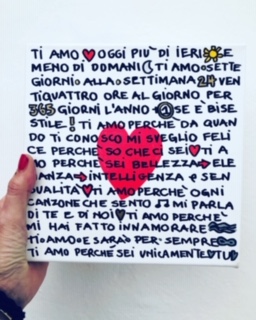 TI AMO OGGI PIÙ DI IERI E
MENO DI DOMANI TI AMO SETTE
GIORNI ALLA SETTIMANA 24 VEN
TIQUATTRO ORE AL GIORNO PER
365 GIORNI L'ANNO @ SE È BISE
STILE! TI AMO PERCHÈ DA QUAN
DO TI CONOSCO MI SVEGLIO FELI
CE PERCHÈ SO CHE CI SEI TI A
MO PERCHÈ SEI BELLEZZA ELE
GANZA INTELLIGENZA E SEN
SUALITÀ TI AMO PERCHÈ OGNI
CANZONE CHE SENTO MI PARLA
DI TE E DI NOI TI AMO PERCHÈ
MI HAI FATTO INNAMORARE
TI AMO E SARÀ PER SEMPRE
TI AMO PERCHÉ SEI UNICAMENTE TU